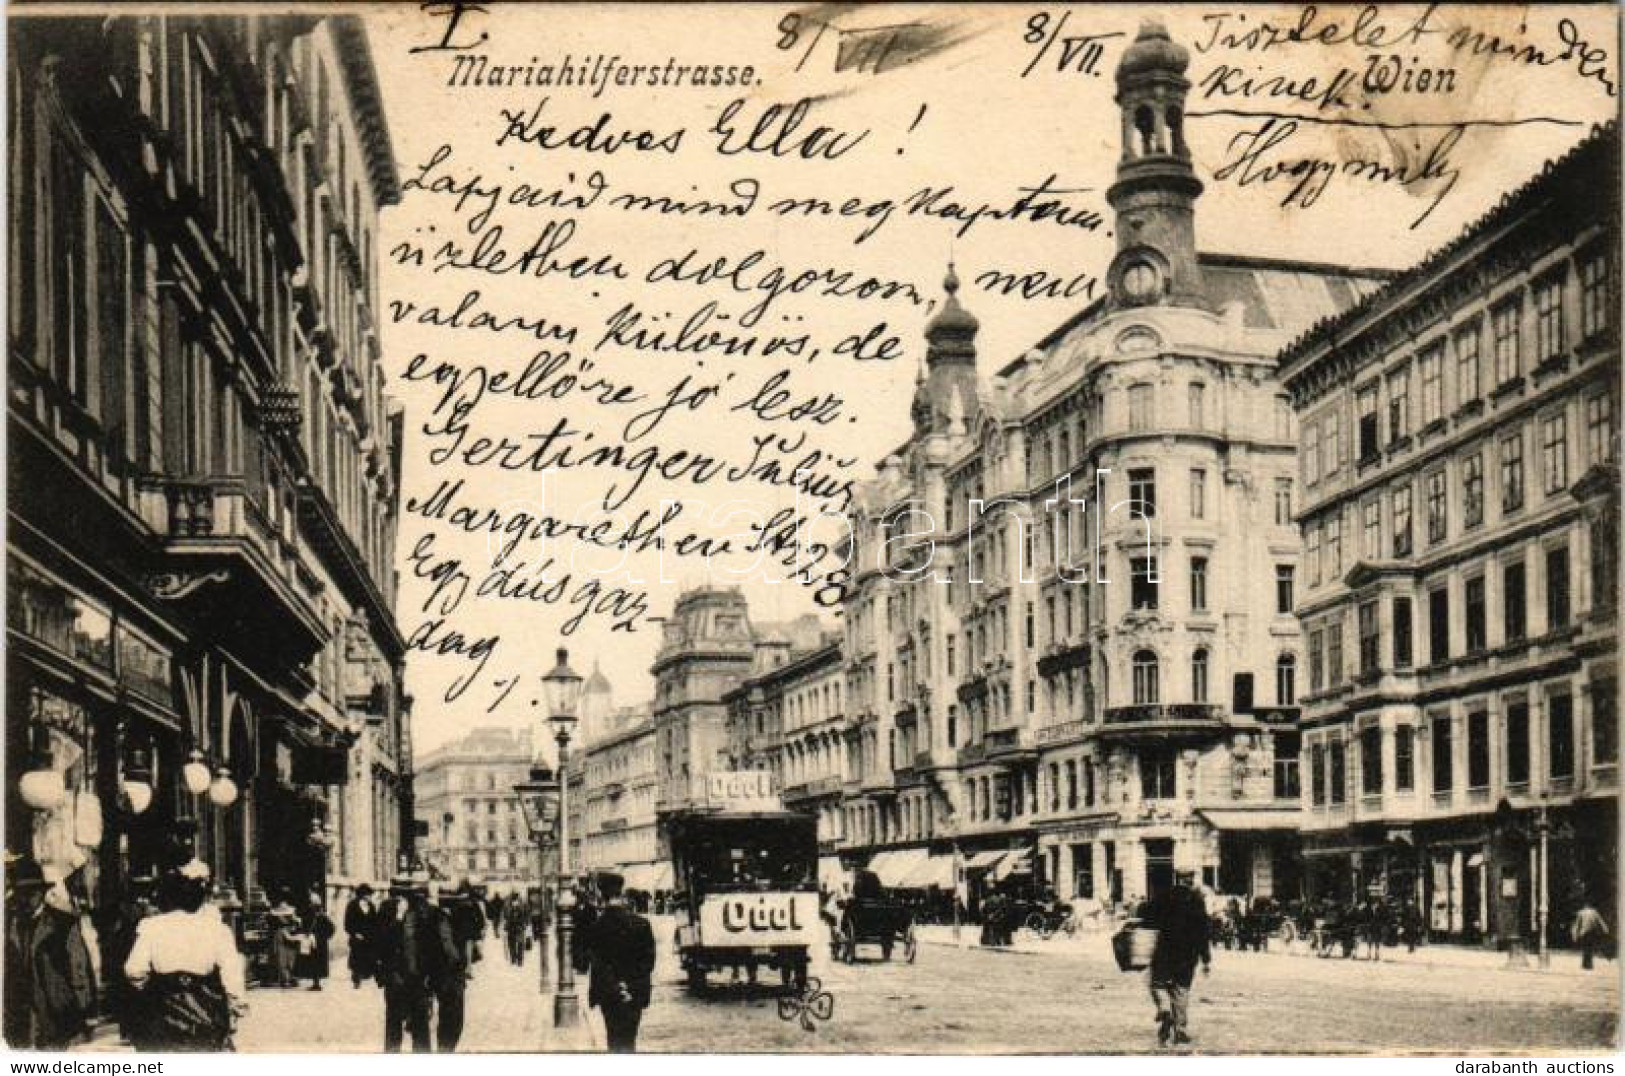 I.
8/VII.
8/VII.
Tisztelet minden
kinek.
Mariahilferstrasse.
Wien
Kedves Ella!
Hogy mily
Lapjaid mind megkaptam.
üzletben dolgozom, nem
valami különös, de
egyellőre jó lesz.
Gertinger Július
Margarethen Str 28.
Egy dús gaz-
dag
Odol
Odol
darabanth
darabanth auctions